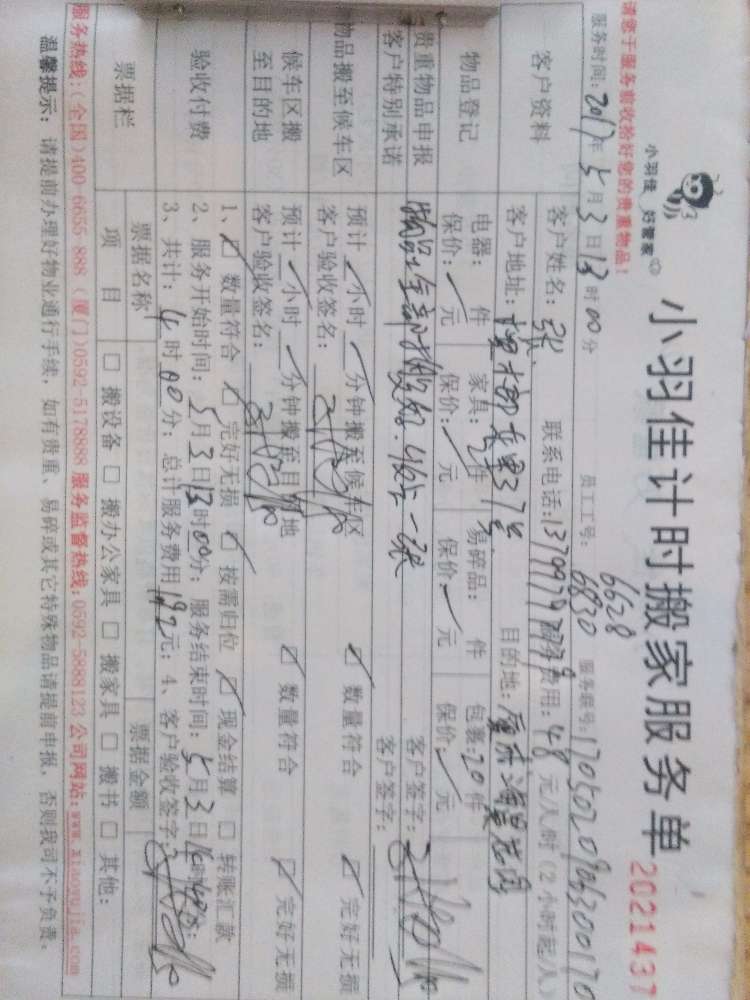 小羽佳计时搬家服务单
2021437
小羽佳 好管家
请您于服务前收拾好您的贵重物品!
员工工号: 6628
6830
服务时间: 2017年5月3日13时00分
服务联号:
客户资料
客户姓名: 张 联系电话: 服务费用: 48 元/人/时(2小时起/人)
客户地址: 目的地:
物品登记
电器: 件 家具: 件 易碎品: 件 包裹: 20件
保价: 元 保价: 元 保价: 元 保价: 元
贵重物品申报
客户特别承诺
客户签字:
客户签字:
物品搬至候车区
预计 小时 分钟搬至候车区 ☑ 数量符合 ☑ 完好无损
客户验收签名:
候车区搬
至目的地
预计 小时 分钟搬至目的地 ☑ 数量符合 ☑ 完好无损
客户验收签名:
验收付费
1、☑ 数量符合 ☑ 完好无损 ☑ 按需归位 ☑ 现金结算 □ 转账汇款
2、服务开始时间: 5月3日13时00分; 服务结束时间: 5月3日
3、共计: 4时00分; 总计服务费用192元; 4、客户验收签字:
票据栏
票据名称 票据金额
项目 □ 搬设备 □ 搬办公家具 □ 搬家具 □ 搬书 □ 其他:
服务热线:(全国)400-6655-888 (厦门)0592-5178888 服务监督热线:0592-5888123 公司网站:www.xiaoyujia.com
温馨提示: 请提前办理好物业通行手续, 如有贵重、易碎或其它特殊物品请提前申报, 否则我司不予负责。